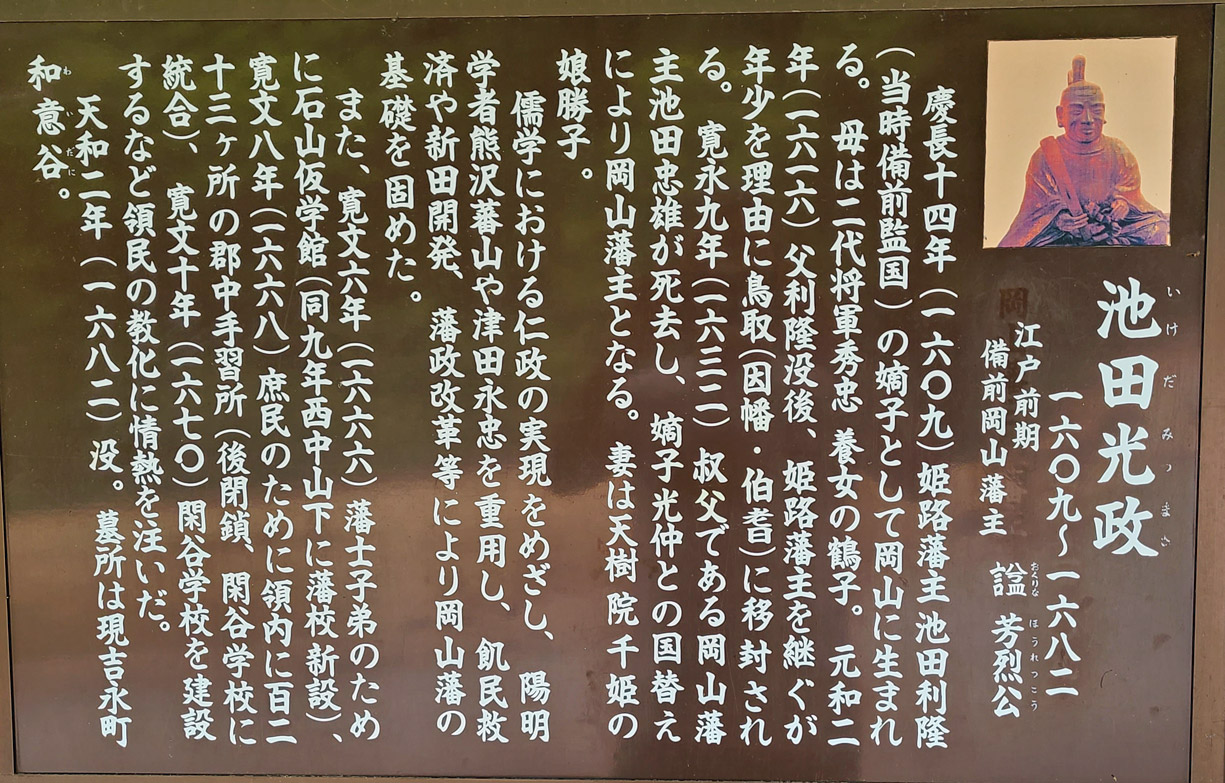 池田光政
いけだみつまさ
一六〇九〜一六八二
江戸前期
備前岡山藩主 諡 芳烈公
おくりな ほうれつこう
慶長十四年(一六〇九)姫路藩主池田利隆
(当時備前監国)の嫡子として岡山に生まれ
る。母は二代将軍秀忠 養女の鶴子。元和二
年(一六一六)父利隆没後、姫路藩主を継ぐが
年少を理由に鳥取(因幡・伯耆)に移封され
る。寛永九年(一六三二)叔父である岡山藩
主池田忠雄が死去し、嫡子光仲との国替え
により岡山藩主となる。妻は天樹院千姫の
娘勝子。
儒学における仁政の実現をめざし、陽明
学者熊沢蕃山や津田永忠を重用し、飢民救
済や新田開発、藩政改革等により岡山藩の
基礎を固めた。
また、寛文六年(一六六六)藩士子弟のため
に石山仮学館(同九年西中山下に藩校新設)、
寛文八年(一六六八)庶民のために領内に百二
十三ヶ所の郡中手習所(後閉鎖、閑谷学校に
統合)、寛文十年(一六七〇)閑谷学校を建設
するなど領民の教化に情熱を注いだ。
天和二年(一六八二)没。墓所は現吉永町
和意谷。
わ だに